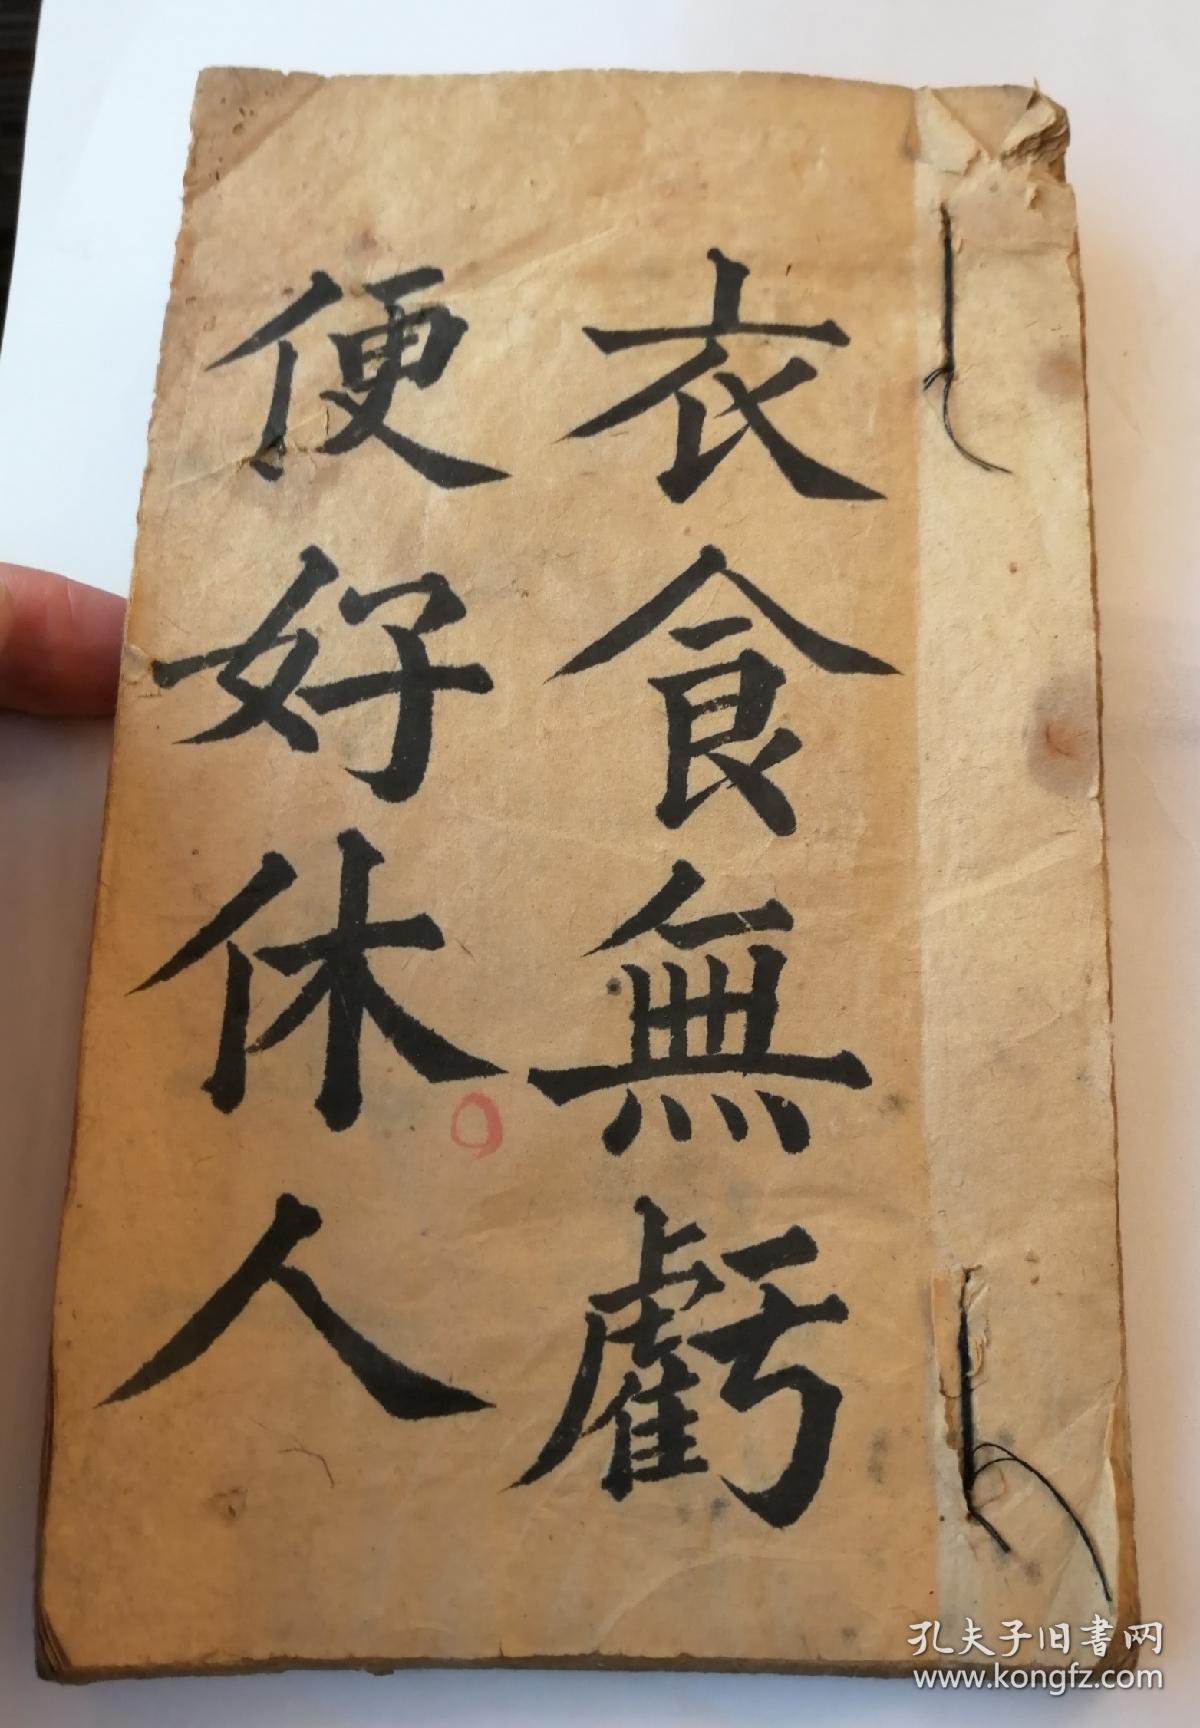 衣食無虧
便好休人
孔夫子旧書网
www.kongfz.com